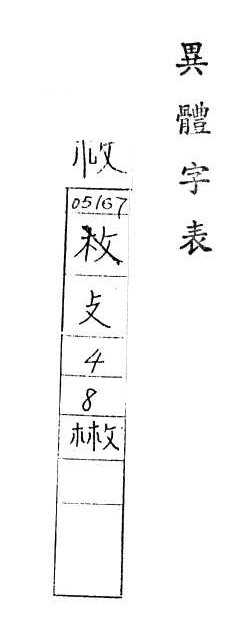 異體字表
05167
枚
攴
4
8
㪚